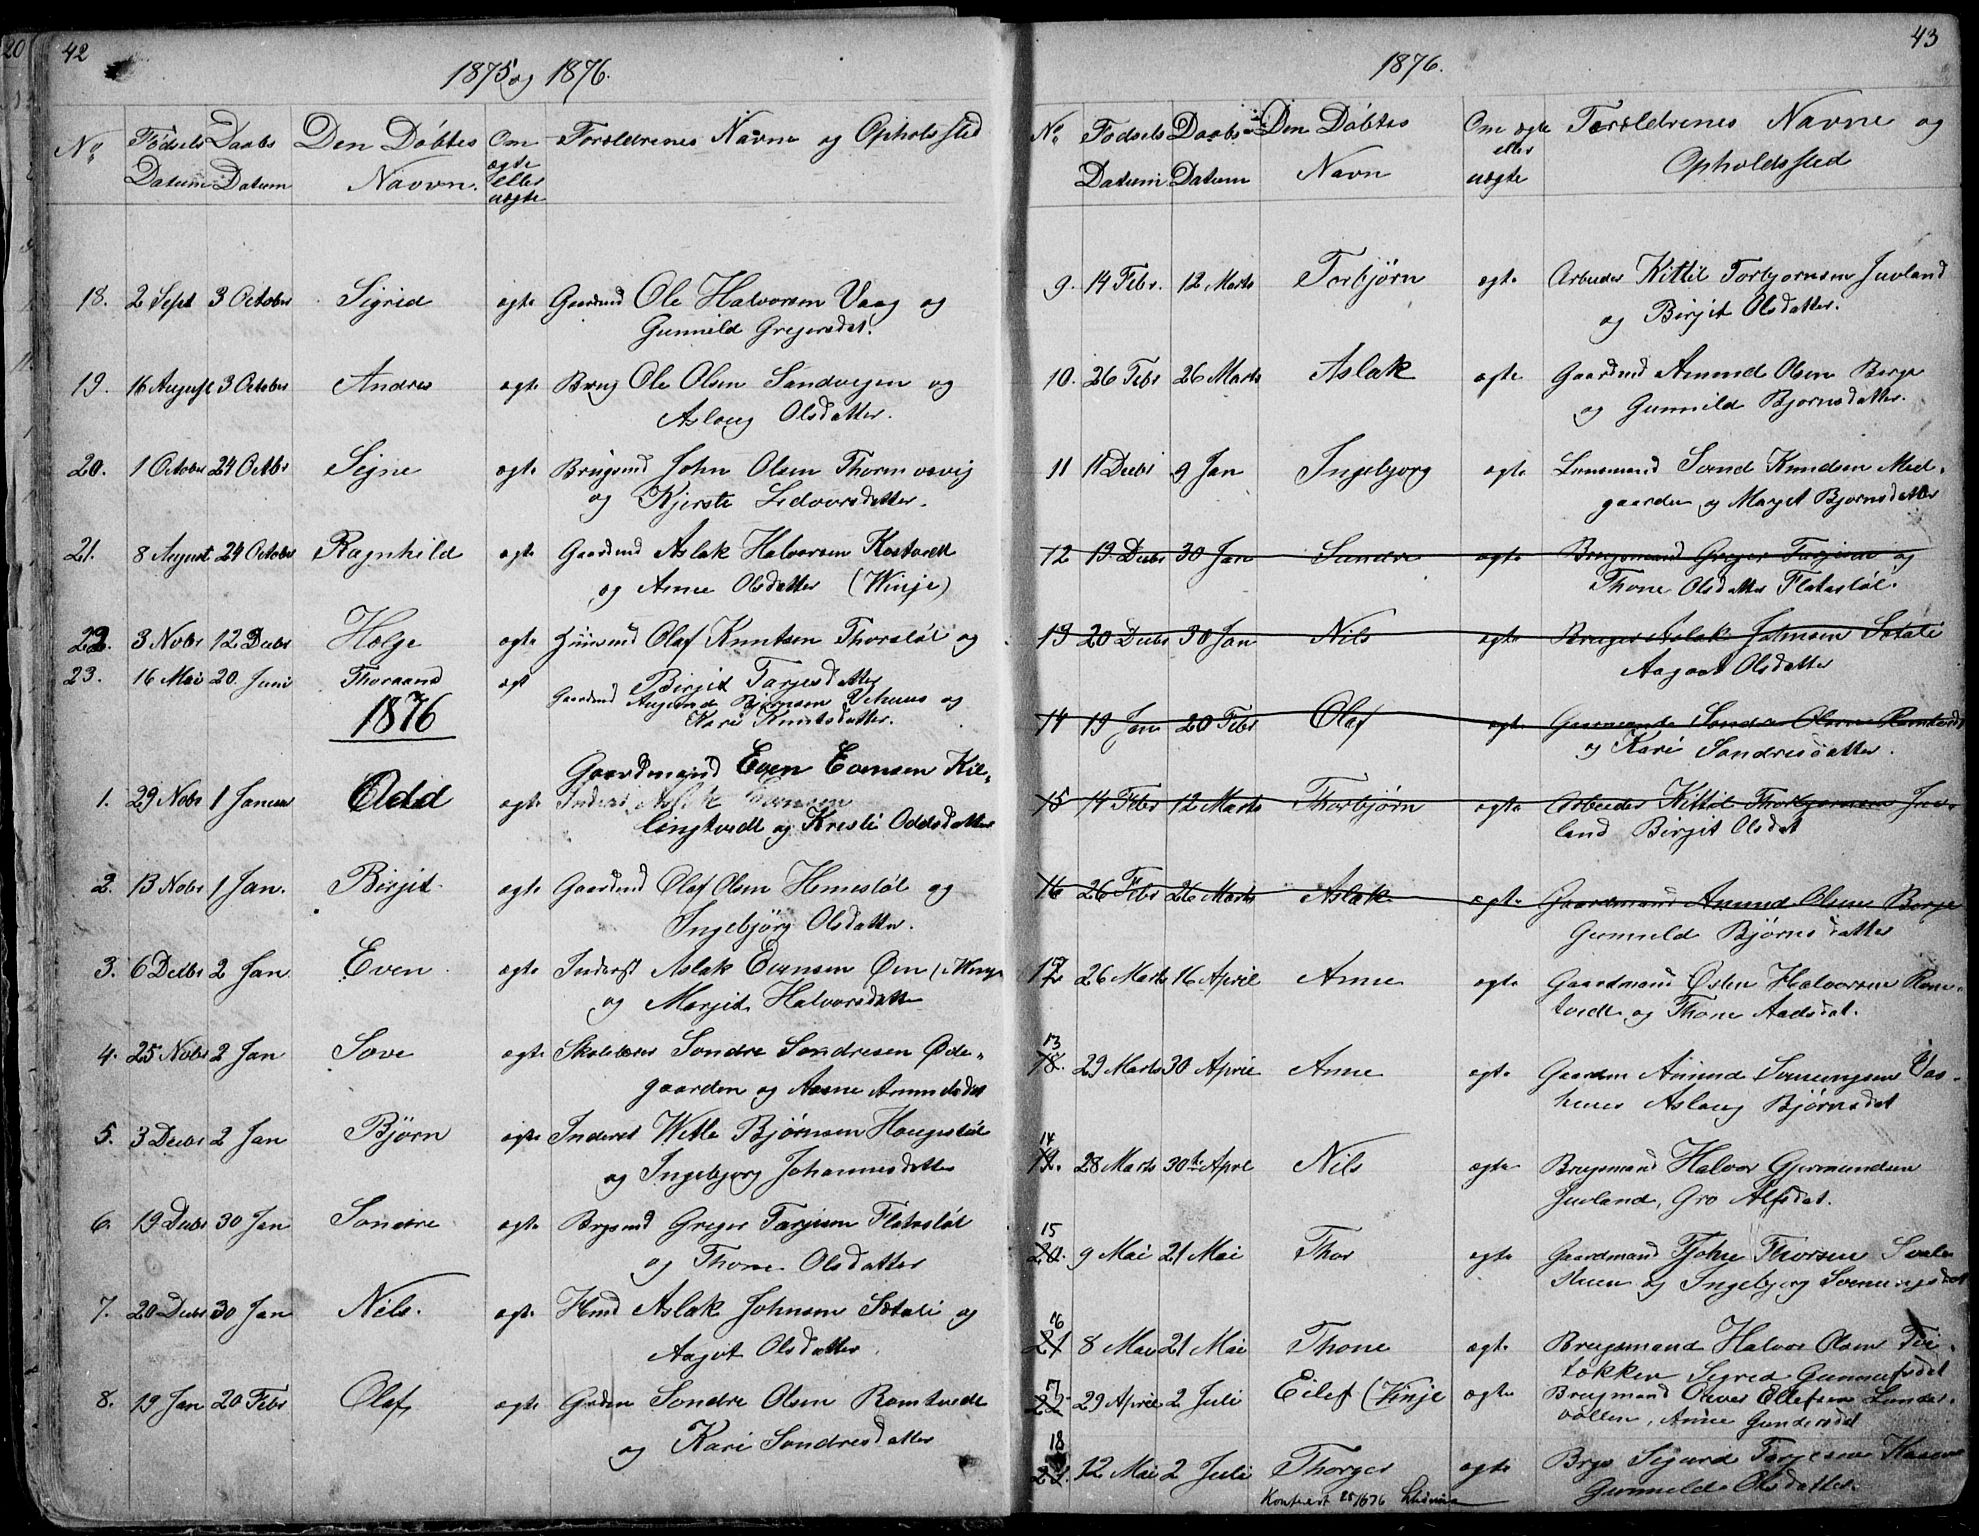 42
1875 og 1876.
No Fødsels Daabs Den Døbtes Om Forældrenes Navne og Opholssted
Datum Datum Navvn. ægte eller uægte
18. 2 Sept 3 October Sigrid ægte Gaardmd Ole Halvorsen Vaag og
Gunnild Gregersdat.
19. 16 August 3 October Andres ægte Brug Ole Olsen Sandvigen og
Aslaug Olsdatter.
20. 1 October 24 Octbr Signe ægte Brugsmd John Olsen
og Kjersti Ledvorsdatter.
21. 8 August 24 October Ragnhild ægte Gaardmd Aslak Halvorsen Kostvedt
og Anne Olsdatter (Winje)
22. 3 Nobr 12 Decbr Helge ægte Huusmd Olaf Knutsen Thorsløl og
Birgit Tarjesdatter
23. 16 Mai 20. Juni Thoraand ægt Gaardmd Augund Bjørnsen Vehuus og
Kari Knutsdatter.
1876
1. 29 Nobr 1 Januar Odd ægte Gaardmand Even Evensen Kil-
Inderst Aslak Evensen
lingtvedt og Kresti Oddsdatter
2. 13 Nobr 1 Jan. Birgit ægte Gaardmd Olaf Olsen og
Ingebjörg Olsdatter.
3. 6 Decbr 2 Jan Even ægte Inderst Aslak Evensen Øen (Winje
og Margit Halvorsdatte
4. 25 Nobr 2 Jan Sove ægte Skolelærer Sondre Sondresen Øde-
gaarden og Aasne Amundsdat
5. 3 Decbr 2 Jan Bjørn ægte Inderst Wetle Bjørnsen Haugesløl
og Ingebjorg Johannesdatter
6. 19 Decbr 30 Jan Sondre ægte Brgsmd Greger Tarjesen Flatesløl
og Thone Olsdatter
7. 20 Decbr 30 Jan Nils. ægte Hmd Aslak Johnsen Sætali og
Aagot Olsdatter.
8. 19 Jan 20 Febr Olaf ægte Grdm Sondre Olsen Romtvedt
og Kari Sondresdatter
43
1876.
No Fødsels Daabs Den Döbtes Om ægte Forældrenes Navne og
Datum Datum Navn eller uægte Opholdssted
9. 14 Febr. 12 Marts Torbjørn ægte Arbeider Kittil Torbjornsen Juvland
og Birgit Olsdatter.
10. 26 Febr 26 Marts Aslak ægte Gaardmd Amund Olsen Berge
og Gunnild Bjornsdatter.
11 11 Decbr 9 Jan Ingebjorg ægte Lensmand Svend Knudsen Mid-
gaarden og Margit Bjornsdatter
12 19 Decbr 30 Jan Sondre ægte Brugsmand Greger Tarjesen og
Thone Olsdatter Flatesløl.
13 20 Decbr 30 Jan Nils ægte Bruger Aslak Johnsen Sætali
Aagaat Olsdatter
14 19 Jan 20 Febr Olaf ægte Gaarmand Sondre Olsen Romtvedt
og Kari Sondresdatter.
15 14 Febr 12 Marts Thorbjörn ægte Arbeider Kittil Thorbjornsen Juv-
land Birgit Olsdat
16 26 Febr 26 Marts Aslak ægte Gaardmand Amund Olsen Berge
Gunnild Bjørnsdatter
12 26 Marts 16 April Anne ægte Gaardmand Østen Halvorsen Rom-
tvedt og Thone Aadsdat.
13
18. 29 Marts 30 April Anne ægte Gaardm Amund Sveinungsen Vaa-
henes Aslaug Bjørnsdat
14
19. 28 Marts 30te Aprl Nils ægte Brugsmand Halvor Gjermundsen
Juvland, Gro Alfsdat.
15
20. 9 Mai 21 Mai Thor ægte Gaardmand Tjøne Thorsen
og Ingebjorg Sveinungsdat
16
21 8 Mai 21 Mai Thone ægte Brugsmand Halvor Olsen Tvi-
tokken Sigrid Gunnulfsdat
17
22. 29 April 2 Juli Eilef (Vinje ægte Brugmand Oliver Ellefsen Lunde-
vollen, Anne Gundersdat
18
12 Mai 2 Juli Thorger ægte Brgs Sigurd Tarjesen
Gunnild Olsdatter.
Konfereret 25/7 76